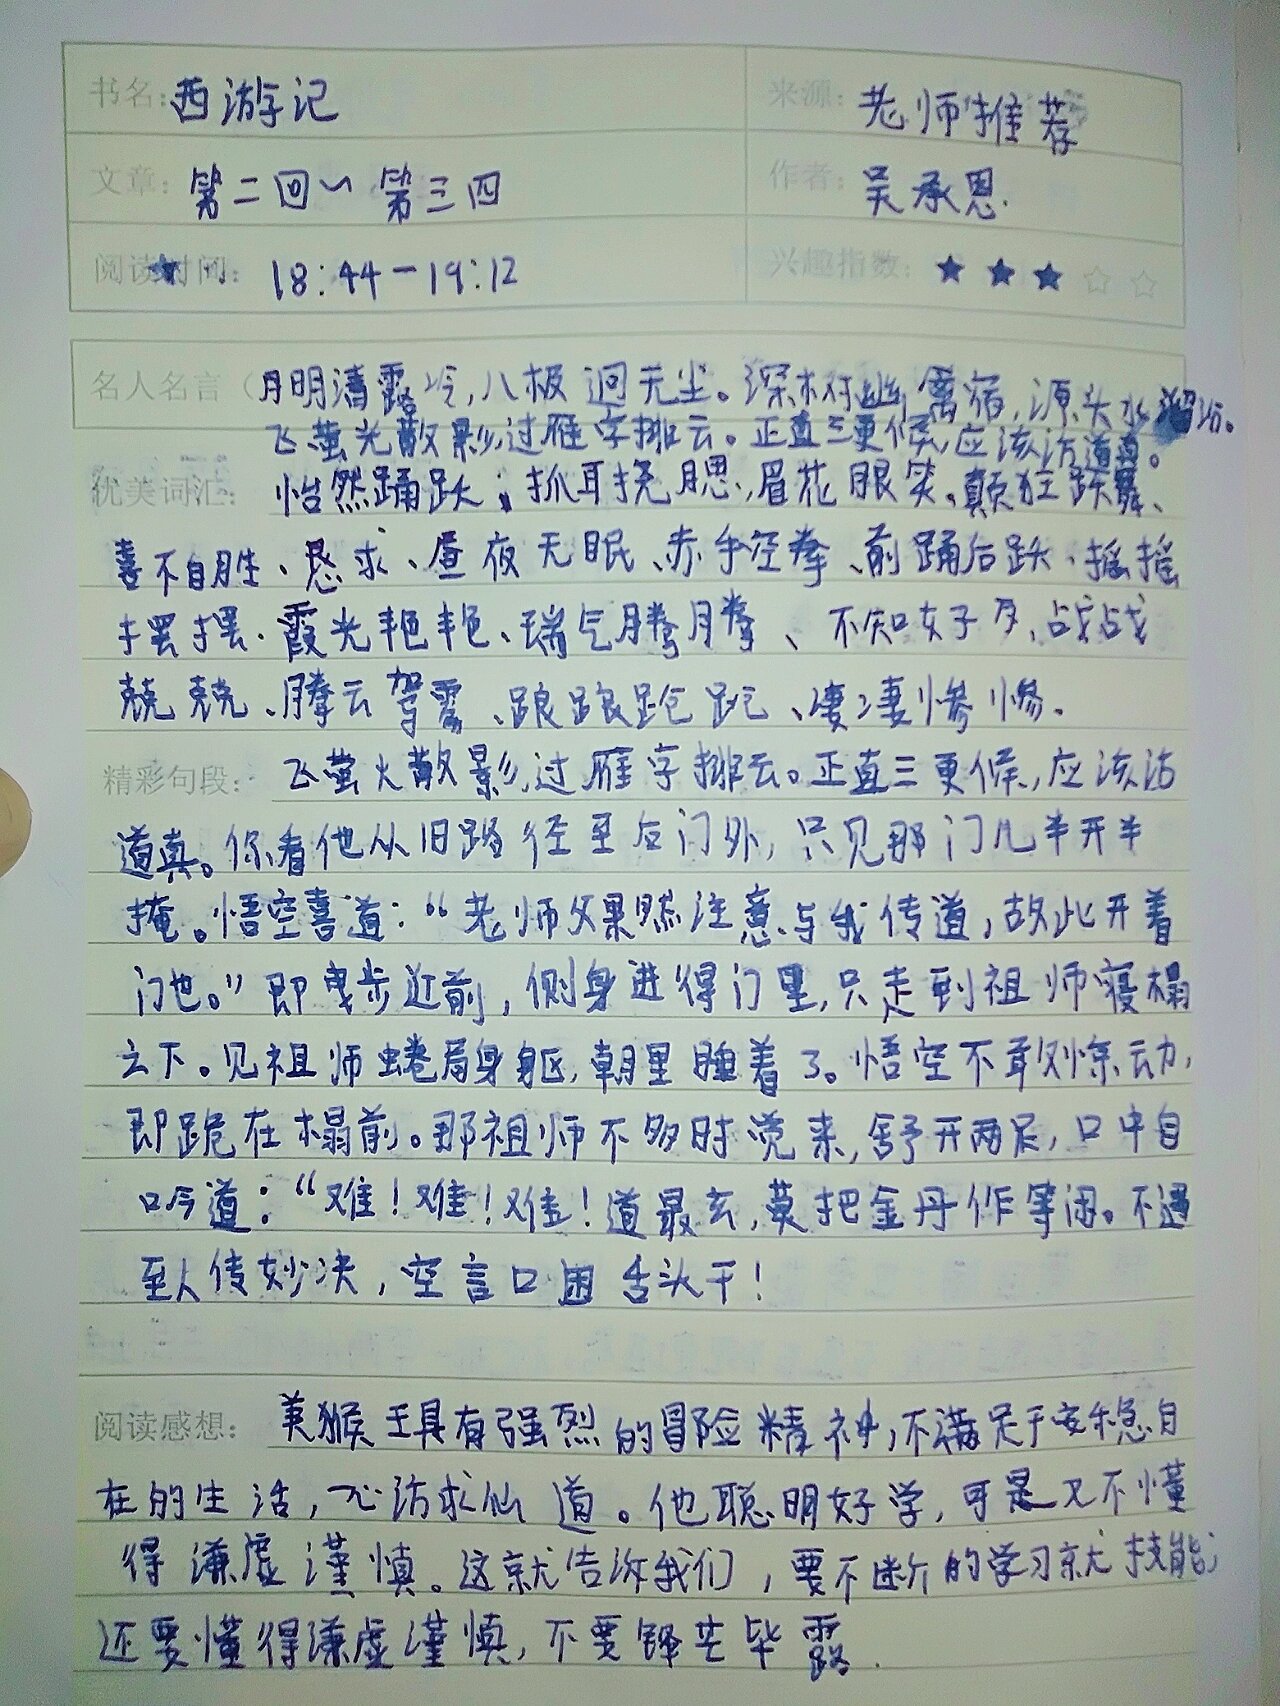 书名：西游记 来源：老师推荐
文章：第二回～第三四 作者：吴承恩.
阅读时间：18:44－19:12 兴趣指数：★★★☆☆
名人名言（月明清露冷，八极迥无尘。深林幽禽宿，源头水溜汾。
飞萤光散影，过雁字排云。正直三更候，应该访道真。
优美词汇：怡然踊跃；抓耳挠腮、眉花眼笑、颠狂跃舞、
喜不自胜、恳求、昼夜无眠、赤手空拳、前踊后跃、摇摇
摆摆、霞光艳艳、瑞气腾腾、不知好歹、战战
兢兢、腾云驾雾、踉踉跄跄、凄凄惨惨。
精彩句段：飞萤火散影，过雁字排云。正直三更候，应该访
道真。你看他从旧路径至后门外，只见那门儿半开半
掩。悟空喜道：“老师父果然注意与我传道，故此开着
门也。”即曳步近前，侧身进得门里，只走到祖师寝榻
之下。见祖师蜷局身躯，朝里睡着了。悟空不敢惊动，
即跪在榻前。那祖师不多时觉来，舒开两足，口中自
吟道：“难！难！难！道最玄，莫把金丹作等闲。不遇
至人传妙决，空言口困舌头干！
阅读感想：美猴王具有强烈的冒险精神，不满足于安稳自
在的生活，一心访求仙道。他聪明好学，可是又不懂
得谦虚谨慎。这就告诉我们，要不断的学习就技能，
还要懂得谦虚谨慎，不要锋芒毕露.